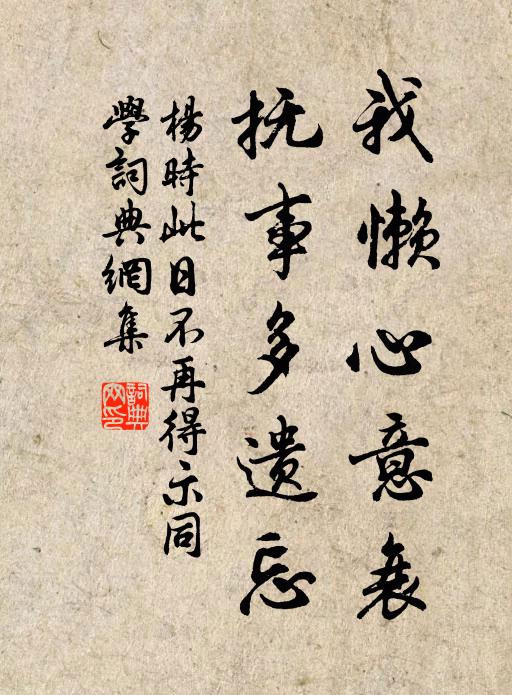 我懒心意衰
抚事多遗忘
楊時此日不再得示同
學詞典網集
詞典
网印